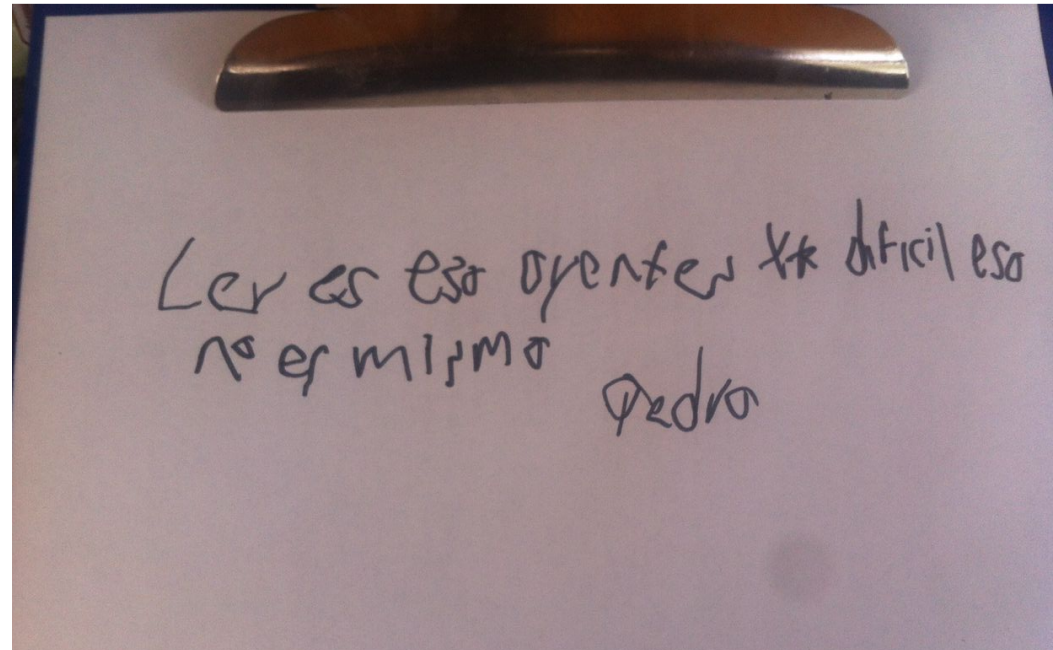 Ler es eso oyentes dificil eso
no es mismo
Pedro